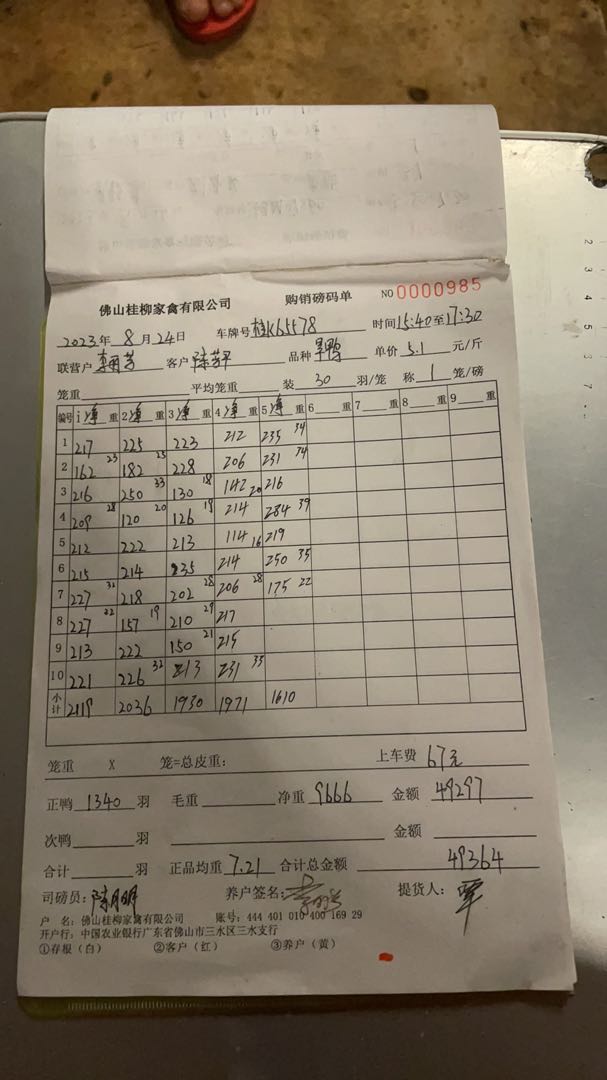 佛山桂柳家禽有限公司 购销磅码单 NO 0000985
2023年8月24日 车牌号 桂K65578 时间15:40至17:30
联营户 客户 品种 单价 5.1 元/斤
笼重 平均笼重 装 30 羽/笼 称 1 笼/磅
编号 1净重 2净重 3净重 4净重 5净重 6 重 7 重 8 重 9 重
1 217 225 223 212 235 34
2 162 23 182 25 228 206 231 34
3 216 250 33 130 18 142 20 216
4 209 28 120 20 126 19 214 284 39
5 212 222 213 114 16 219
6 215 214 235 214 250 35
7 227 32 218 202 28 206 28 175 22
8 227 22 157 19 210 29 217
9 213 222 150 21 215
10 221 226 32 213 231 33
小计 2119 2036 1930 1971 1610
笼重 X 笼=总皮重: 上车费 67元
正鸭 1340 羽 毛重 净重 9666 金额 49297
次鸭 羽 金额
合计 羽 正品均重 7.21 合计总金额 49364
司磅员: 养户签名: 提货人:
户 名: 佛山桂柳家禽有限公司 账号: 444 401 010 400 169 29
开户行: 中国农业银行广东省佛山市三水区三水支行
①存根（白） ②客户（红） ③养户（黄）